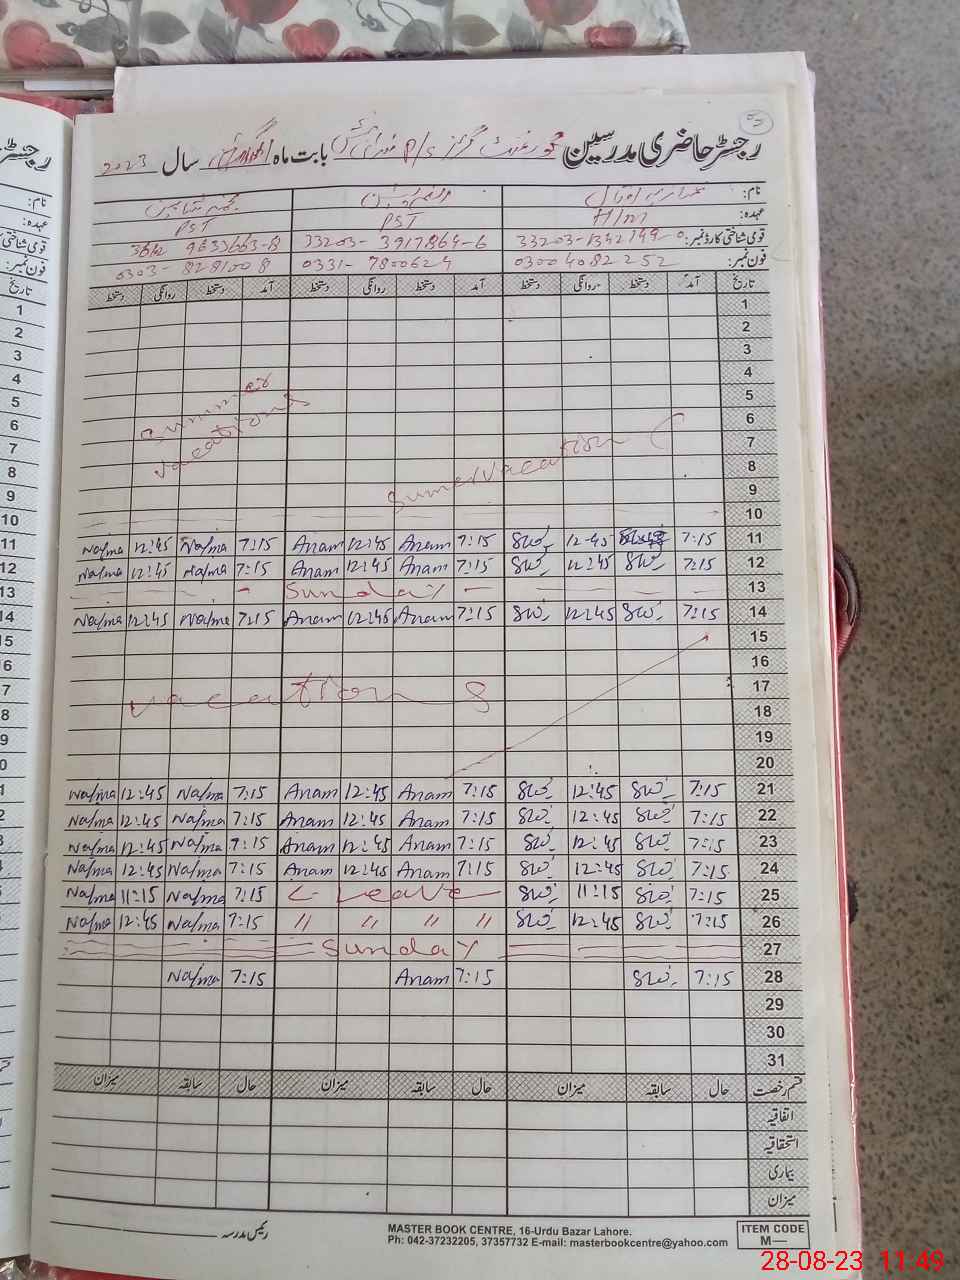 رجسٹر حاضری مدرسین گورنمنٹ گرلز P/S بابت ماہ اگست سال 2023
نام:
عہدہ: H/M PST PST
قومی شناختی کارڈ نمبر: 33203-1342749-0 33203-3917864-6
فون نمبر: 03004082252 0331-7800624 0303-8281008
تاریخ آمد دستخط روانگی دستخط آمد دستخط روانگی دستخط آمد دستخط روانگی دستخط
1
2
3
4
Summer
5
vacations
6
7
Sumer vacation
8
9
10
11 7:15 12-45 7:15 Anam 12:45 Anam 7:15 Najma 12:45 Najma
12 7:15 12:45 7:15 Anam 12:45 Anam 7:15 Najma 12:45 Najma
13 Sunday
14 7:15 12:45 7:15 Anam 12:45 Anam 7:15 Najma 12:45 Najma
15
16
17 vacations
18
19
20
21 7:15 12:45 7:15 Anam 12:45 Anam 7:15 Najma 12:45 Najma
22 7:15 12:45 7:15 Anam 12:45 Anam 7:15 Najma 12:45 Najma
23 7:15 12:45 7:15 Anam 12:45 Anam 7:15 Najma 12:45 Najma
24 7:15 12:45 7:15 Anam 12:45 Anam 7:15 Najma 12:45 Najma
25 7:15 11:15 Leave 7:15 Najma 11:15 Najma
26 7:15 12:45 " " " " 7:15 Najma 12:45 Najma
27 Sunday
28 7:15 7:15 Anam 7:15 Najma
29
30
31
قسم رخصت حال سابقہ میزان حال سابقہ میزان حال سابقہ میزان
اتفاقیہ
استحقاقیہ
بیماری
میزان
رئیس مدرسہ
MASTER BOOK CENTRE, 16-Urdu Bazar Lahore.
Ph: 042-37232205, 37357732 E-mail: masterbookcentre@yahoo.com
ITEM CODE
M—
28-08-23 11:49